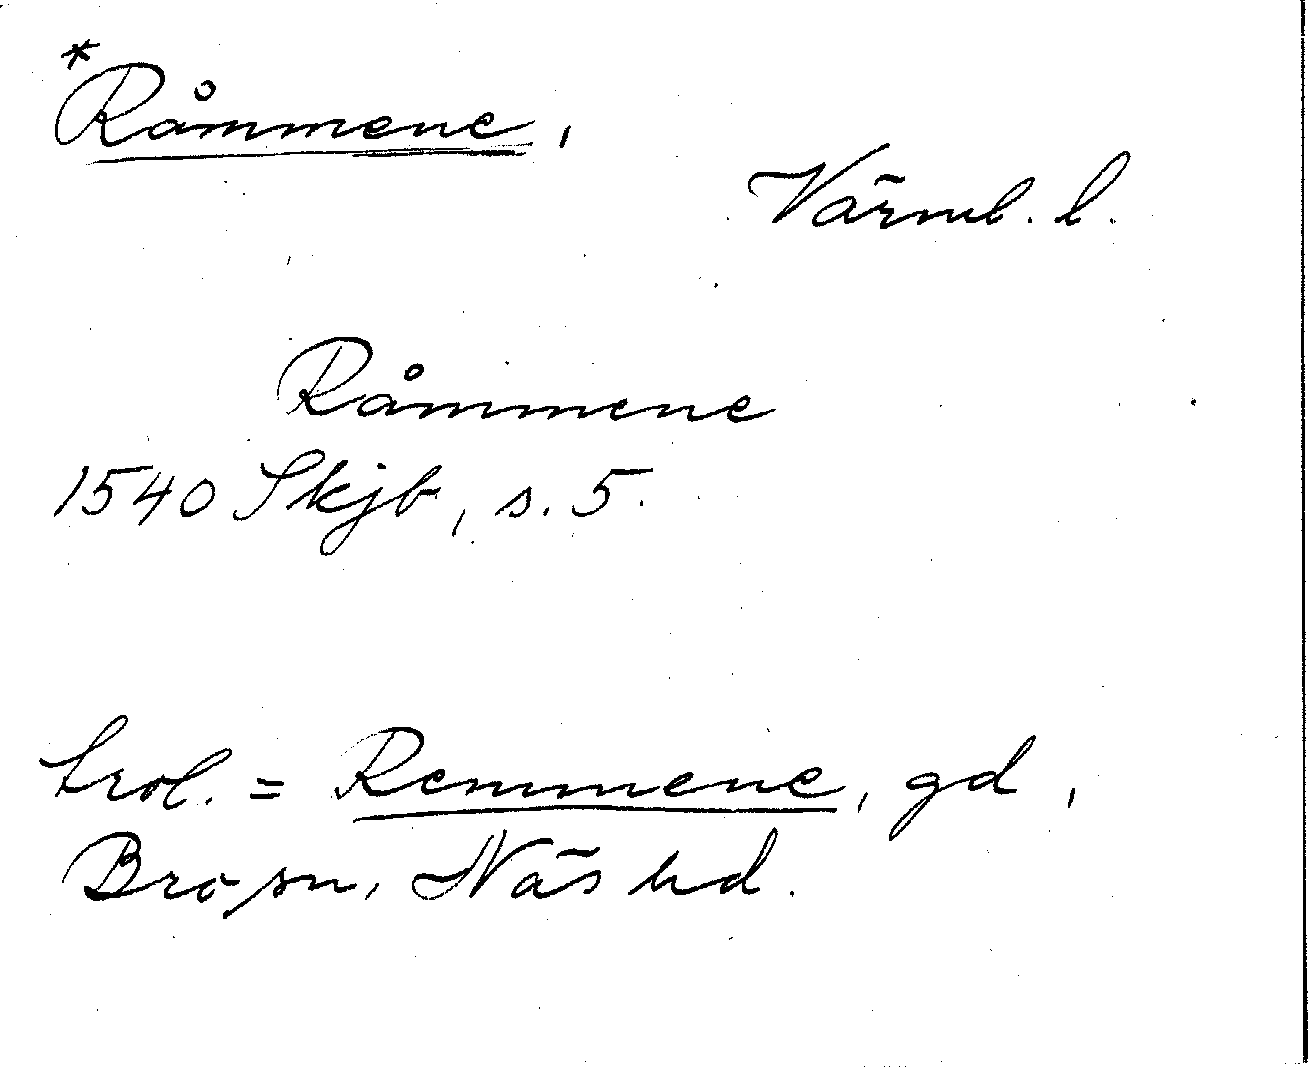 *Råmmene,
Värml. l.
Råmmene
1540 Skjb, s. 5.
trol. = Remmene, gd,
Bro sn, Näs hd.